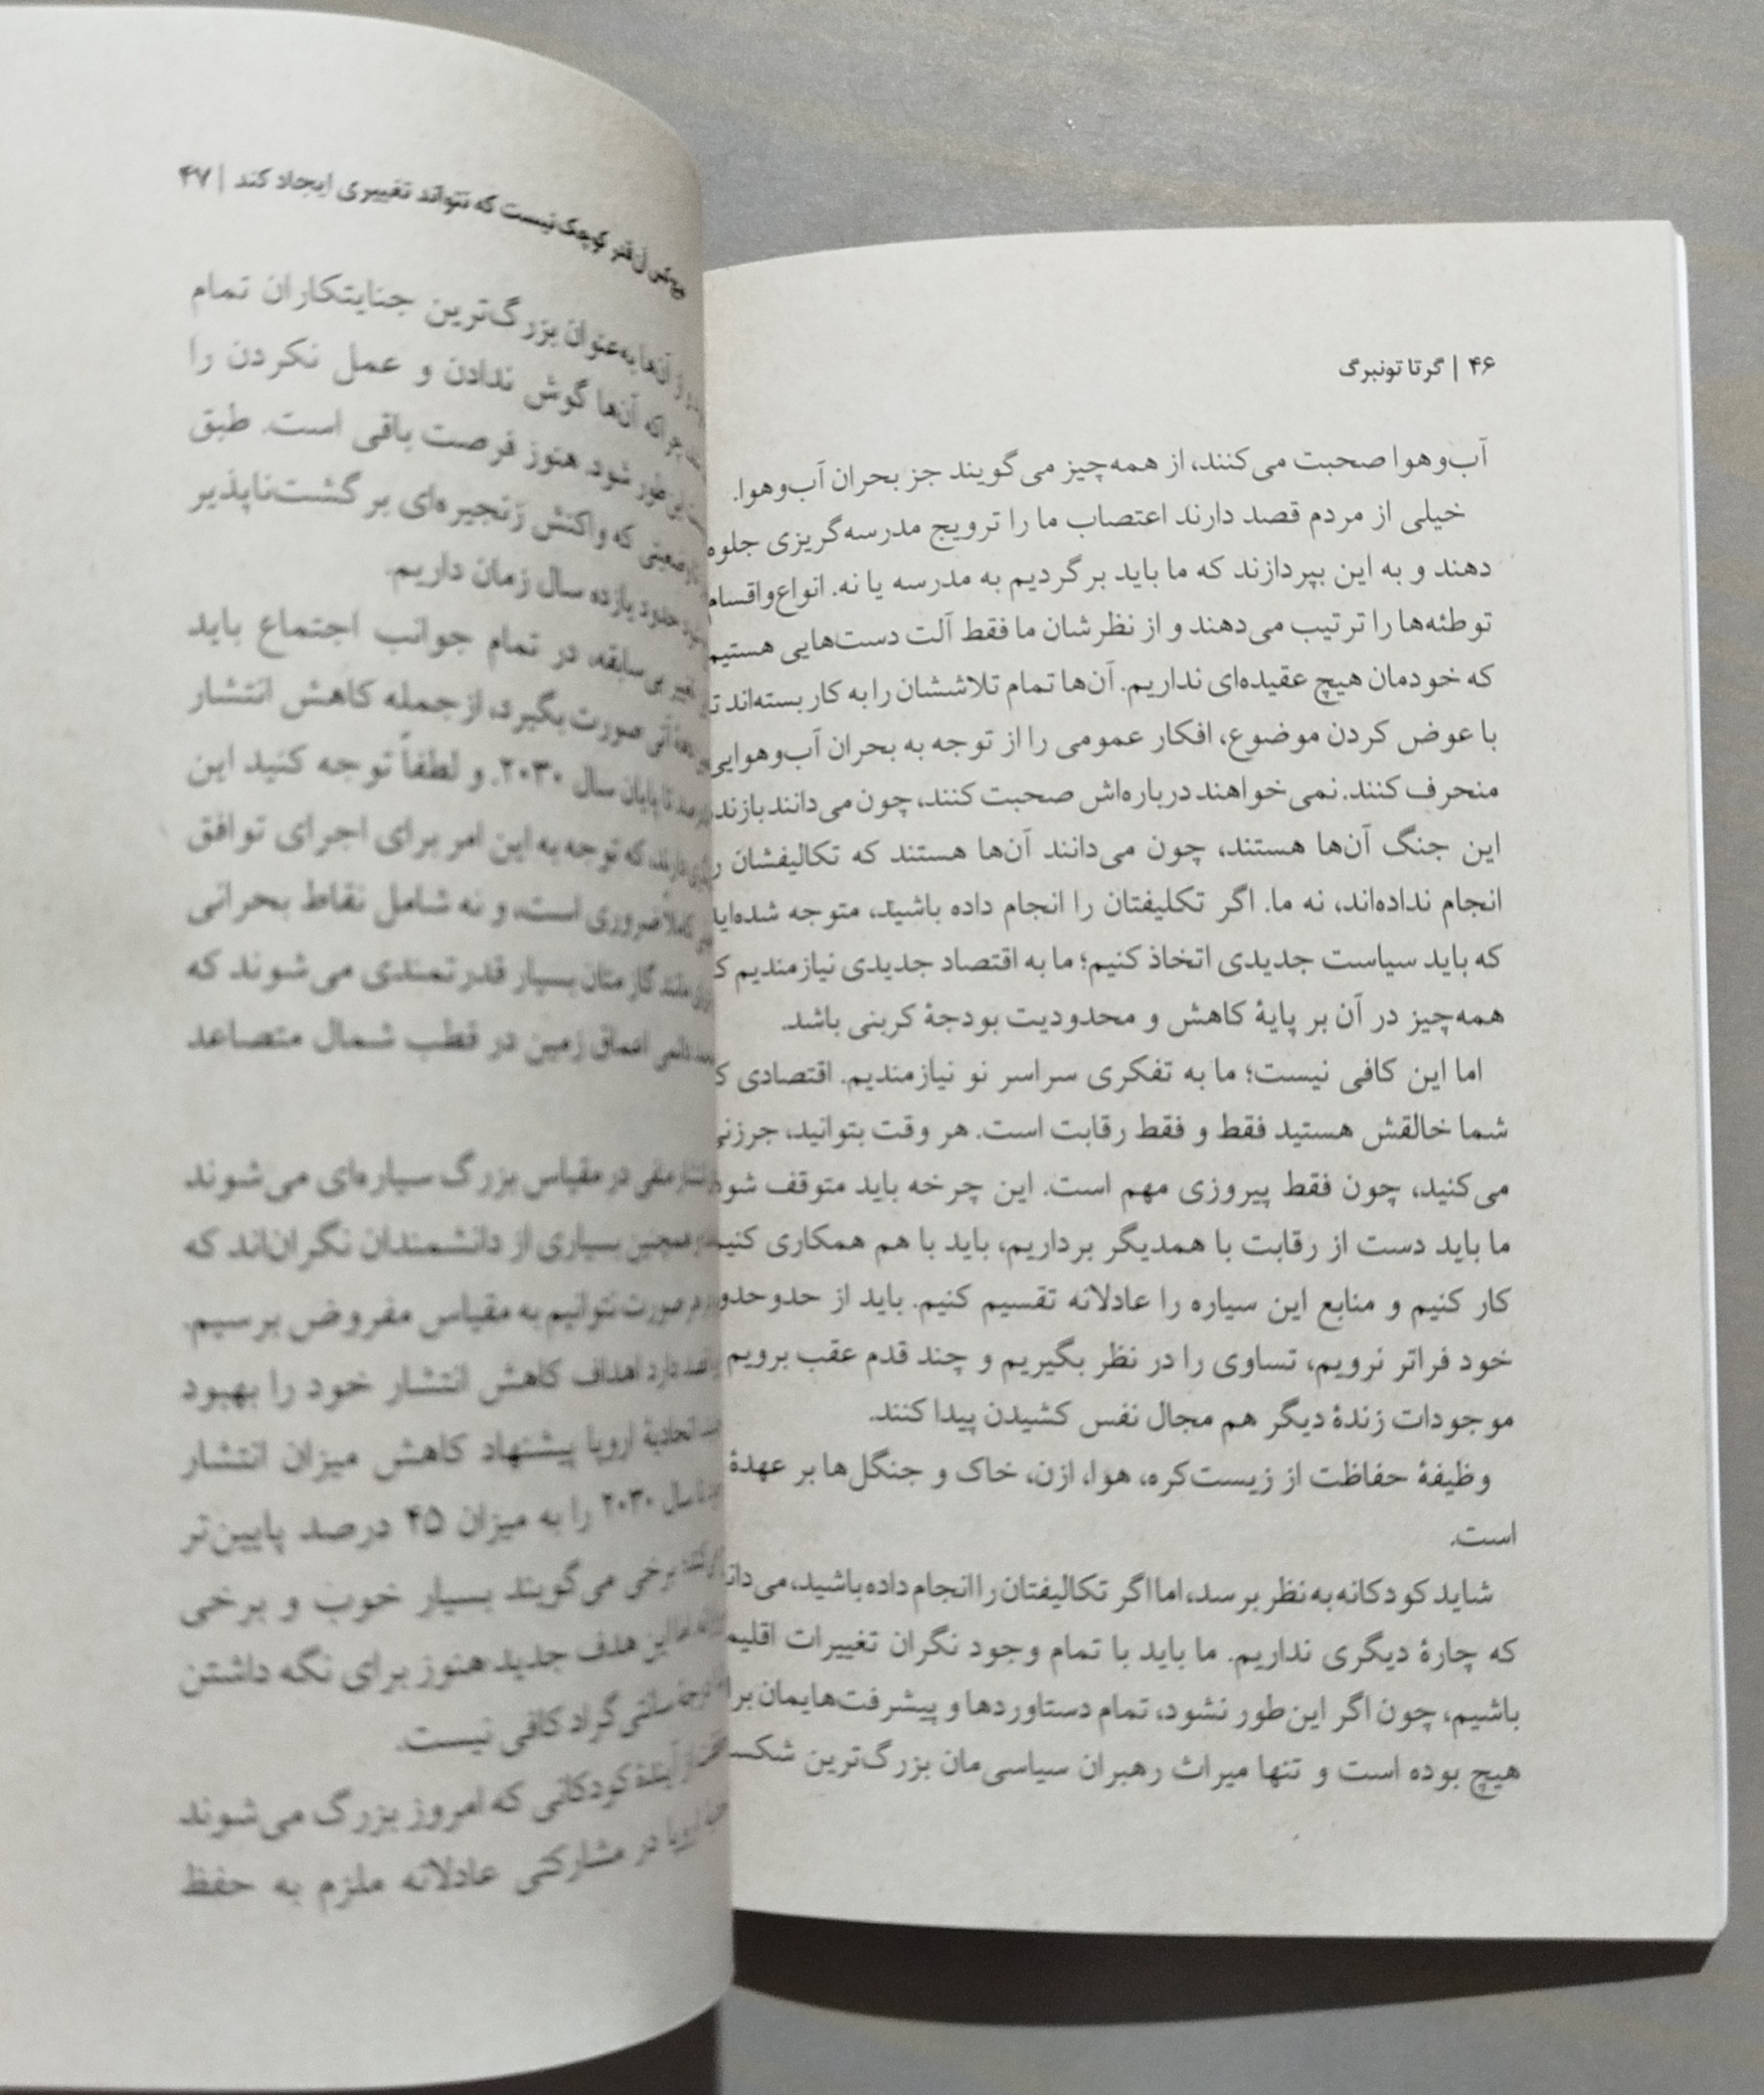 ۴۶ | گرتا تونبرگ
آب‌وهوا صحبت می‌کنند، از همه‌چیز می‌گویند جز بحران آب‌وهوا.
خیلی از مردم قصد دارند اعتصاب ما را ترویج مدرسه‌گریزی جلوه
دهند و به این بپردازند که ما باید برگردیم به مدرسه یا نه. انواع‌واقسام
توطئه‌ها را ترتیب می‌دهند و از نظرشان ما فقط آلت دست‌هایی هستیم
که خودمان هیچ عقیده‌ای نداریم. آن‌ها تمام تلاششان را به کار بسته‌اند
با عوض کردن موضوع، افکار عمومی را از توجه به بحران آب‌وهوایی
منحرف کنند. نمی‌خواهند درباره‌اش صحبت کنند، چون می‌دانند بازنده
این جنگ آن‌ها هستند، چون می‌دانند آن‌ها هستند که تکالیفشان
انجام نداده‌اند، نه ما. اگر تکلیفتان را انجام داده باشید، متوجه شده‌اید
که باید سیاست جدیدی اتخاذ کنیم؛ ما به اقتصاد جدیدی نیازمندیم
همه‌چیز در آن بر پایهٔ کاهش و محدودیت بودجهٔ کربنی باشد.
اما این کافی نیست؛ ما به تفکری سراسر نو نیازمندیم. اقتصادی
شما خالقش هستید فقط و فقط رقابت است. هر وقت بتوانید، جرزنی
می‌کنید، چون فقط پیروزی مهم است. این چرخه باید متوقف شود
ما باید دست از رقابت با همدیگر برداریم، باید با هم همکاری کنیم
کار کنیم و منابع این سیاره را عادلانه تقسیم کنیم. باید از حدوحدود
خود فراتر نرویم، تساوی را در نظر بگیریم و چند قدم عقب برویم
موجودات زندهٔ دیگر هم مجال نفس کشیدن پیدا کنند.
وظیفهٔ حفاظت از زیست‌کره، هوا، ازن، خاک و جنگل‌ها بر عهدهٔ
است.
شاید کودکانه به نظر برسد، اما اگر تکالیفتان را انجام داده باشید،
که چارهٔ دیگری نداریم. ما باید با تمام وجود نگران تغییرات
باشیم، چون اگر این‌طور نشود، تمام دستاوردها و پیشرفت‌هایمان
هیچ بوده است و تنها میراث رهبران سیاسی‌مان بزرگ‌ترین
قدر کوچک نیست که نتواند تغییری ایجاد کند | ۴۷
از آن‌ها به‌عنوان بزرگ‌ترین جنایتکاران تمام
آن‌ها گوش ندادن و عمل نکردن را
شود. هنوز فرصت باقی است. طبق
که واکنش زنجیره‌ای برگشت‌ناپذیر
حدود یازده سال زمان داریم.
بی‌سابقه، در تمام جوانب اجتماع باید
صورت بگیرد، ازجمله کاهش انتشار
تا پایان سال ۲۰۳۰. و لطفاً توجه کنید این
که توجه به این امر برای اجرای توافق
ضروری است، و نه شامل نقاط بحرانی
مانند گاز متان بسیار قدرتمندی می‌شوند که
اعماق زمین در قطب شمال متصاعد
منفی در مقیاس بزرگ سیاره‌ای می‌شوند
همچنین بسیاری از دانشمندان نگران‌اند که
صورت نتوانیم به مقیاس مفروض برسیم.
دارد اهداف کاهش انتشار خود را بهبود
اتحادیهٔ اروپا پیشنهاد کاهش میزان انتشار
سال ۲۰۳۰ را به میزان ۴۵ درصد پایین‌تر
برخی می‌گویند بسیار خوب و برخی
این هدف جدید هنوز برای نگه داشتن
سانتی‌گراد کافی نیست.
از آیندهٔ کودکانی که امروز بزرگ می‌شوند
اروپا در مشارکتی عادلانه ملزم به حفظ